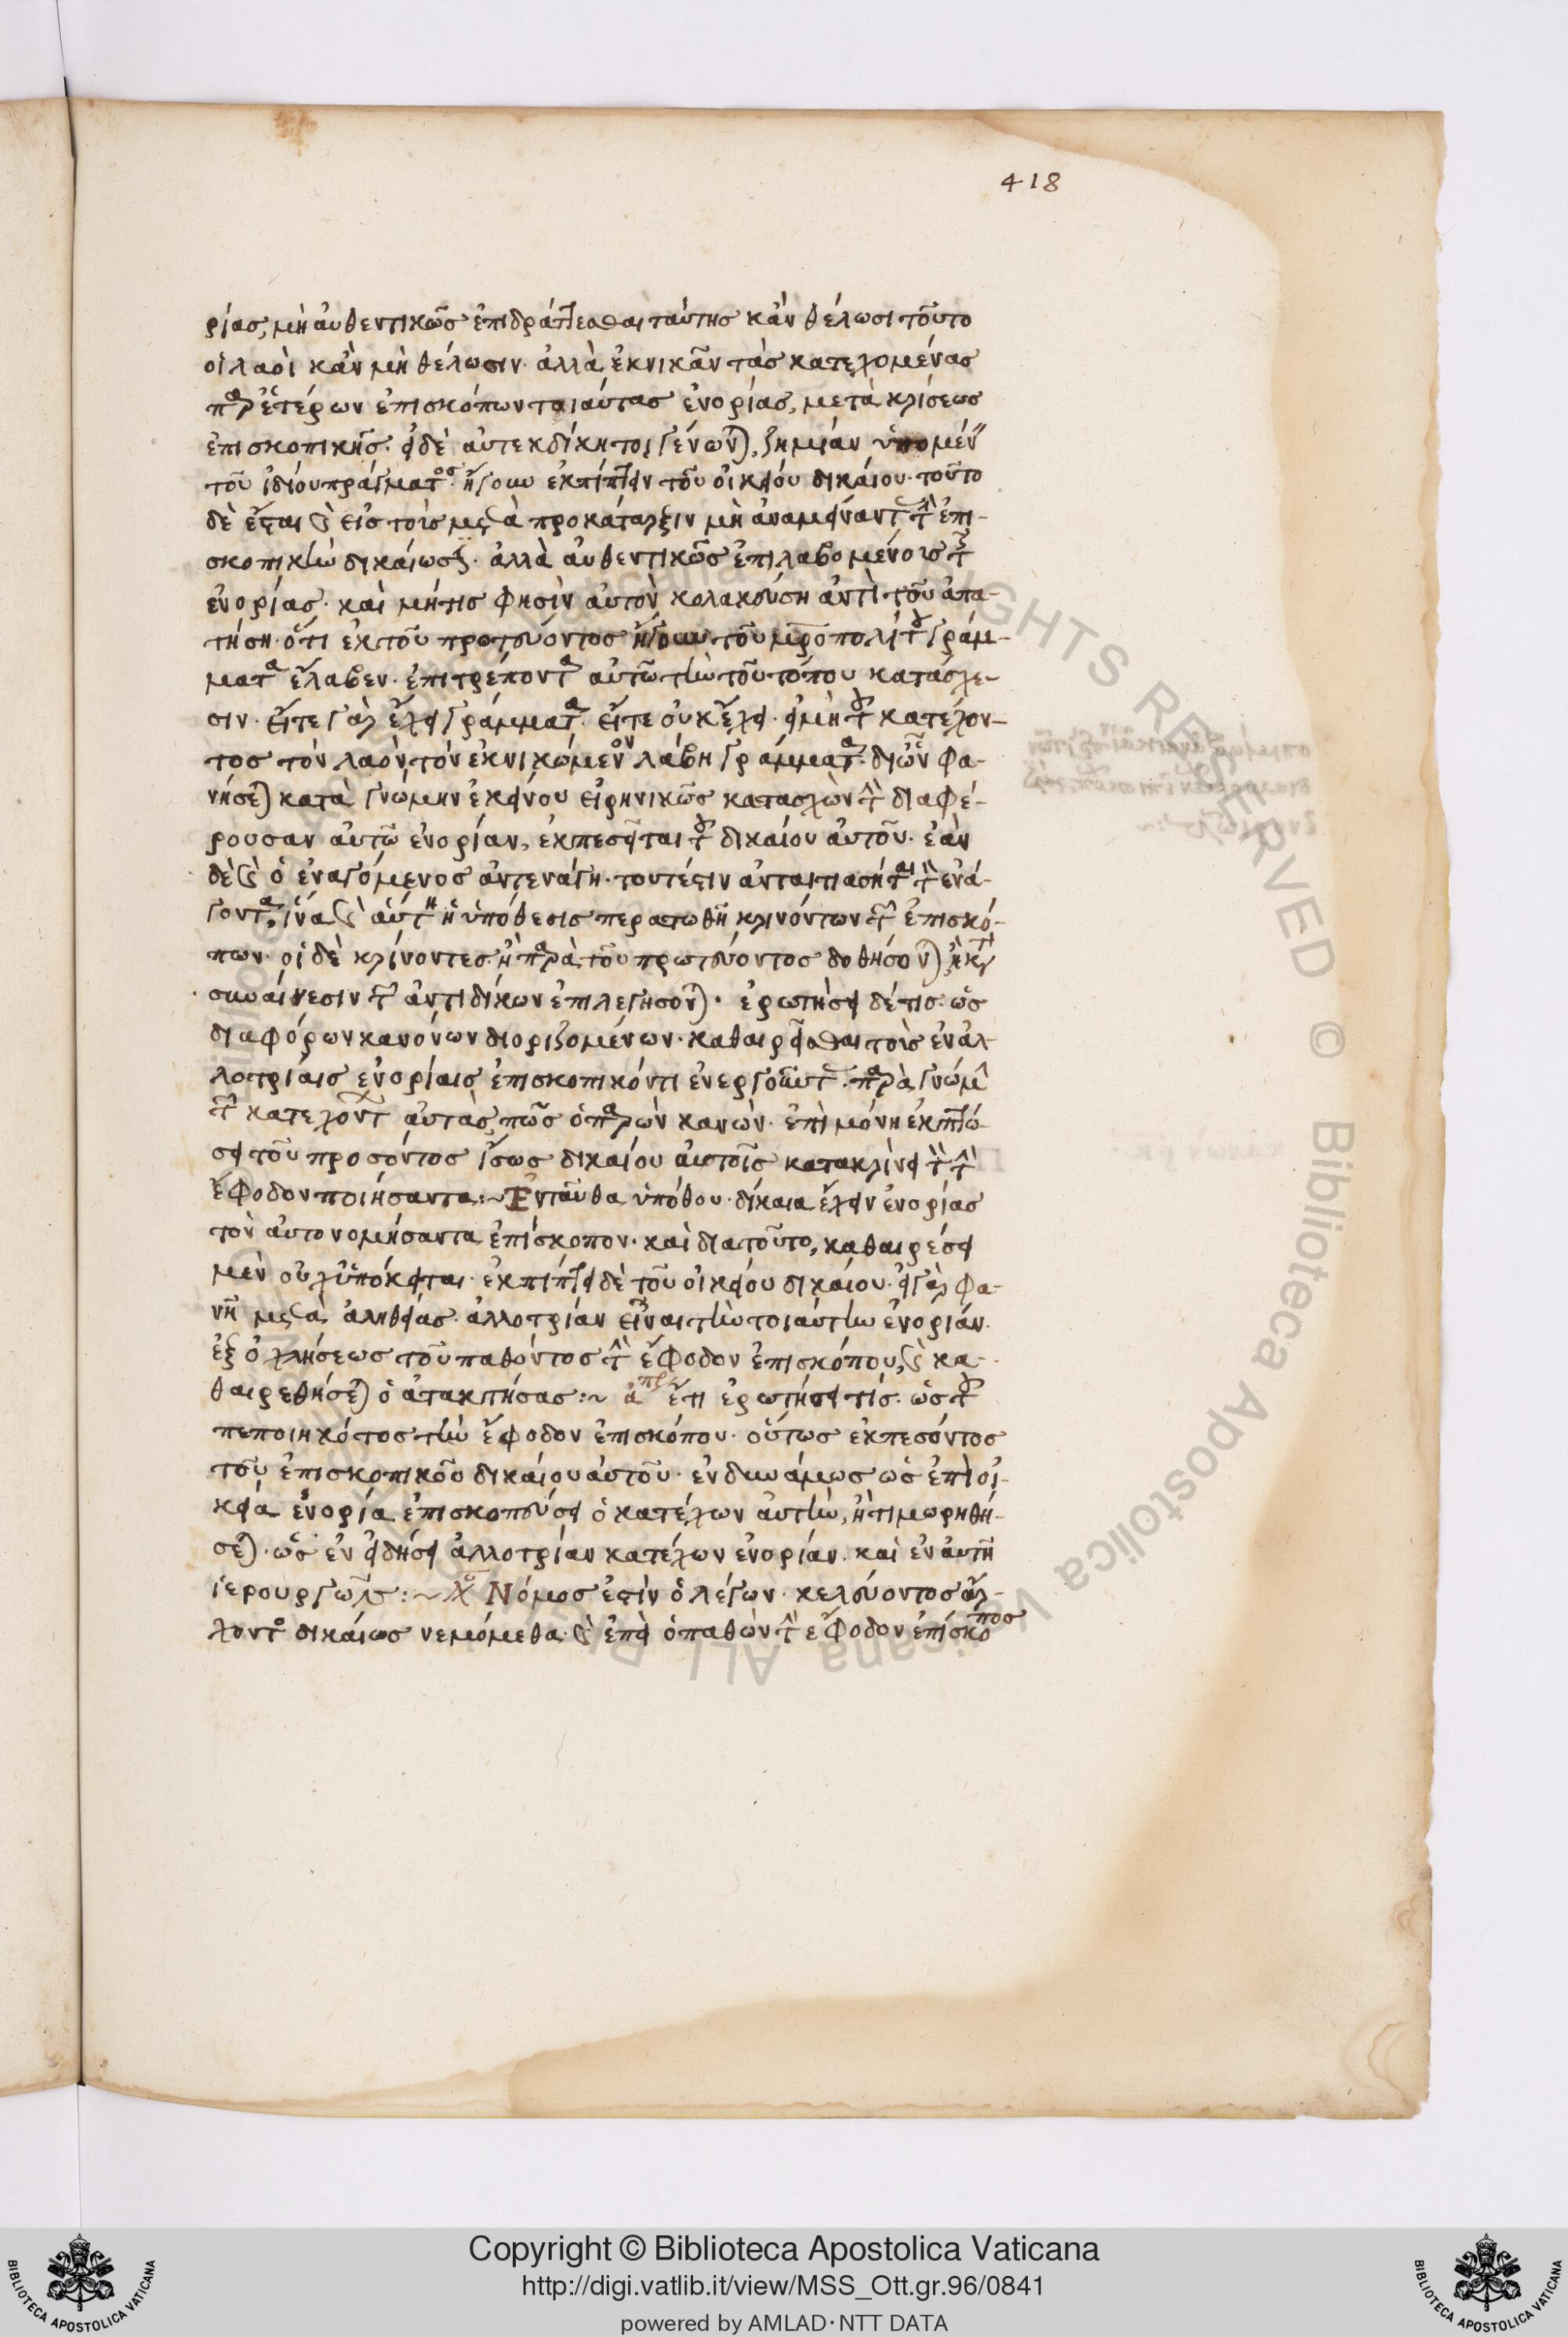 418
ρίας, μὴ αὐθεντικῶς ἐπιδράττεσθαι ταύτης κἂν θέλωσι τοῦτο
οἱ λαοὶ κἂν μὴ θέλωσιν. ἀλλὰ ἐκνικᾶν τὰς κατεχομένας
παρ ἑτέρων ἐπισκόπων τοιαύτας ἐνορίας, μετὰ κρίσεως
ἐπισκοπικῆς. εἰ δὲ αὐτεκδίκητοι γένων), ζημίαν ὑπομέν
τοῦ ἰδίου πράγματος. ἤγουν ἐκπίπτειν τοῦ οἰκείου δικαίου. τοῦτο
δὲ ἔσται καὶ εἰς τοῖς μετὰ προκάταρξιν μὴ ἀναμείναντ τὴν ἐπι-
σκοπικὴν δικαίωσιν. ἀλλὰ αὐθεντικῶς ἐπιλαβομένοις τῆς
ἐνορίας. καὶ μή τις φησὶν αὐτὸν κολακούση ἀντὶ τοῦ ἀπα-
τήση. ὅτι ἐκ τοῦ πρωτεύοντος ἤγουν τοῦ μροπολίτου γράμ-
ματα ἔλαβεν. ἐπιτρέποντα αὐτῶ τὴν τοῦ τόπου κατάσχε-
σιν. εἴτε γὰρ ἔχει γράμματα. εἴτε οὐκ ἔχει. εἰ μὴ τοῦ κατέχον-
τος τὸν λαὸν τὸν ἐκνικώμενον λάβη γράμματα. δι ὧν φα-
νήσε) κατὰ γνώμην ἐκείνου εἰρηνικῶς κατασχὼν τὴν διαφέ-
ρουσαν αὐτῶ ἐνορίαν, ἐκπεσεῖται τοῦ δικαίου αὐτοῦ. ἐὰν
δὲ καὶ ὁ ἐναγόμενος ἀντενάγη. τουτέστιν ἀνταιτιασήται τὸν ἐνά-
γοντα, ἵνα καὶ αὕτη ἡ ὑπόθεσις περατωθῆ κρινόντων τῶν ἐπισκό-
πων. οἱ δὲ κρίνοντες ἢ παρὰ τοῦ πρωτεύοντος δοθήσον) ἢ κατὰ
συναίνεσιν τῶν ἀντιδίκων ἐπιλεγήσον). ἐρωτήσει δέ τις. ὡς
διαφόρων κανόνων διοριζομένων. καθαιρεῖσθαι τοὺς ἐν ἀλ-
λοτρίαις ἐνορίαις ἐπισκοπικόν τι ἐνεργοῦντ. παρὰ γνώμην
τῶν κατεχόντ αὐτὰς, πῶς ὁ παρὼν κανὼν. ἐπὶ μόνη ἐκπτώ-
σει τοῦ προσόντος ἴσως δικαίου αὐτοῖς κατακρίνει τὸν τὴν
ἔφοδον ποιήσαντα:~ Ἐνταῦθα ὑπόθου. δίκαια ἔχειν ἐνορίας
τὸν αὐτονομήσαντα ἐπίσκοπον. καὶ διατοῦτο, καθαιρέσει
μὲν οὐχ ὑπόκειται. ἐκπίπτει δὲ τοῦ οἰκείου δικαίου. εἰ γὰρ φα-
νῆ μετὰ ἀληθείας. ἀλλοτρίαν εἶναι τὴν τοιαύτην ἐνορίαν.
ἐξ ὀχλήσεως τοῦ παθόντος τὴν ἔφοδον ἐπισκόπου, καὶ κα-
θαιρεθήσε) ὁ ἀτακτήσας:~ ἔτι ἐρωτήσει τίς. ὡς τοῦ
πεποιηκότος τὴν ἔφοδον ἐπισκόπου. οὕτως ἐκπεσόντος
τοῦ ἐπισκοπικοῦ δικαίου αὐτοῦ. ἐνδυνάμως ὡς ἐπὶ οἰ-
κεία ἐνορία ἐπισκοπεύσει ὁ κατέχων αὐτὴν, ἢ τιμωρηθή-
σε). ὡς ἐν εἰδήσει ἀλλοτρίαν κατέχων ἐνορίαν. καὶ ἐν αὐτῆ
ἱερουργῶν:~ Νόμος ἐστὶν ὁ λέγων. κελεύοντος ἄρ-
χοντος δικαίως νεμόμεθα. καὶ ἐπεὶ ὁ παθὼν τὴν ἔφοδον ἐπίσκοπος
Copyright © Biblioteca Apostolica Vaticana
http://digi.vatlib.it/view/MSS_Ott.gr.96/0841
powered by AMLAD·NTT DATA
BIBLIOTECA APOSTOLICA VATICANA
BIBLIOTECA APOSTOLICA VATICANA